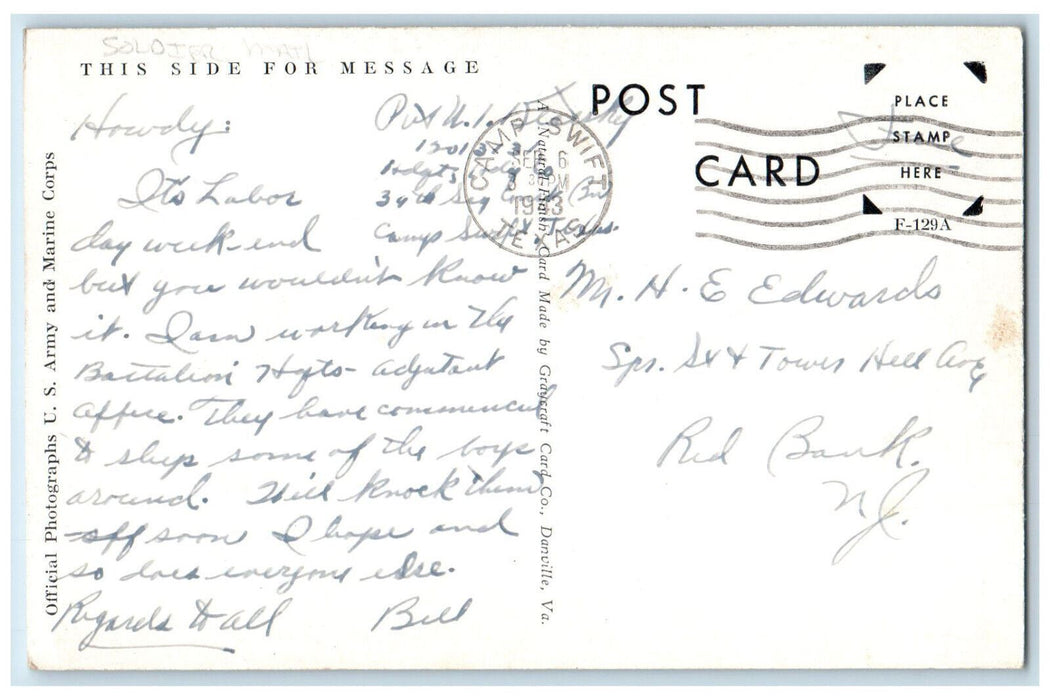 SOLDIER MAIL
THIS SIDE FOR MESSAGE
Howdy:
Pvt W. I.
Hdqts
34th Sig
Camp Swift, Texas.
Its Labor
day week-end
but you wouldn't know
it. I am working in the
Battalion Hqts- adjutant
office. They have commenced
to ship some of the boys
around. We'll knock them
off soon I hope and
so does everyone else.
Regards to all Bill
Official Photographs U. S. Army and Marine Corps
A "Natural-Finish" Card Made by Graycraft Card Co., Danville, Va.
POST
CARD
CAMP SWIFT
SEP 6
PM
1943
TEXAS
PLACE
STAMP
HERE
F-129A
Free
Mr. H. E Edwards
Spr. St & Tower Hill Ave
Red Bank.
NJ.